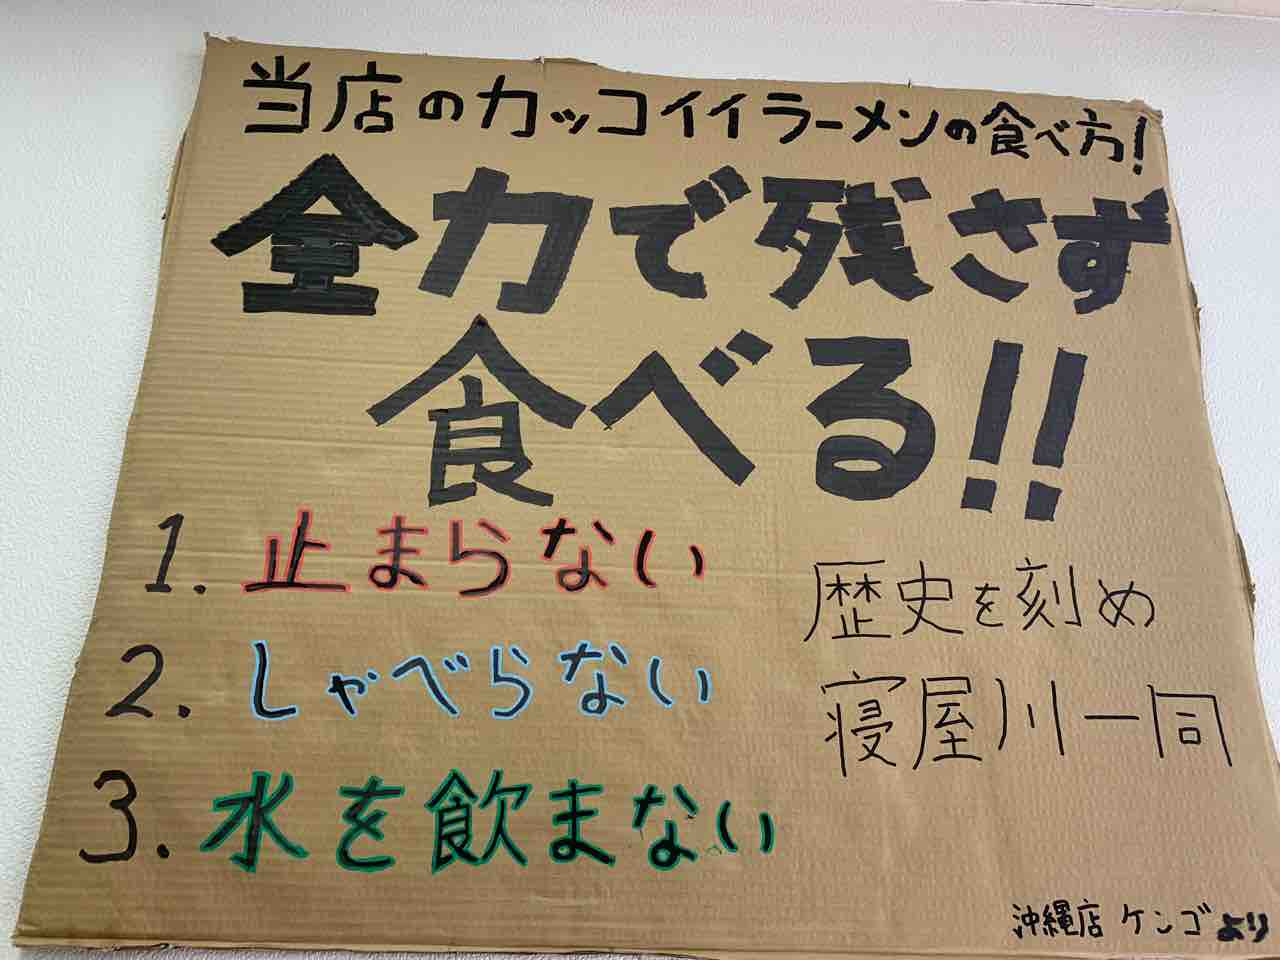 当店のカッコイイラーメンの食べ方!
全力で残さず
食べる!!
1. 止まらない
2. しゃべらない
3. 水を飲まない
歴史を刻め
寝屋川一同
沖縄店 ケンゴより